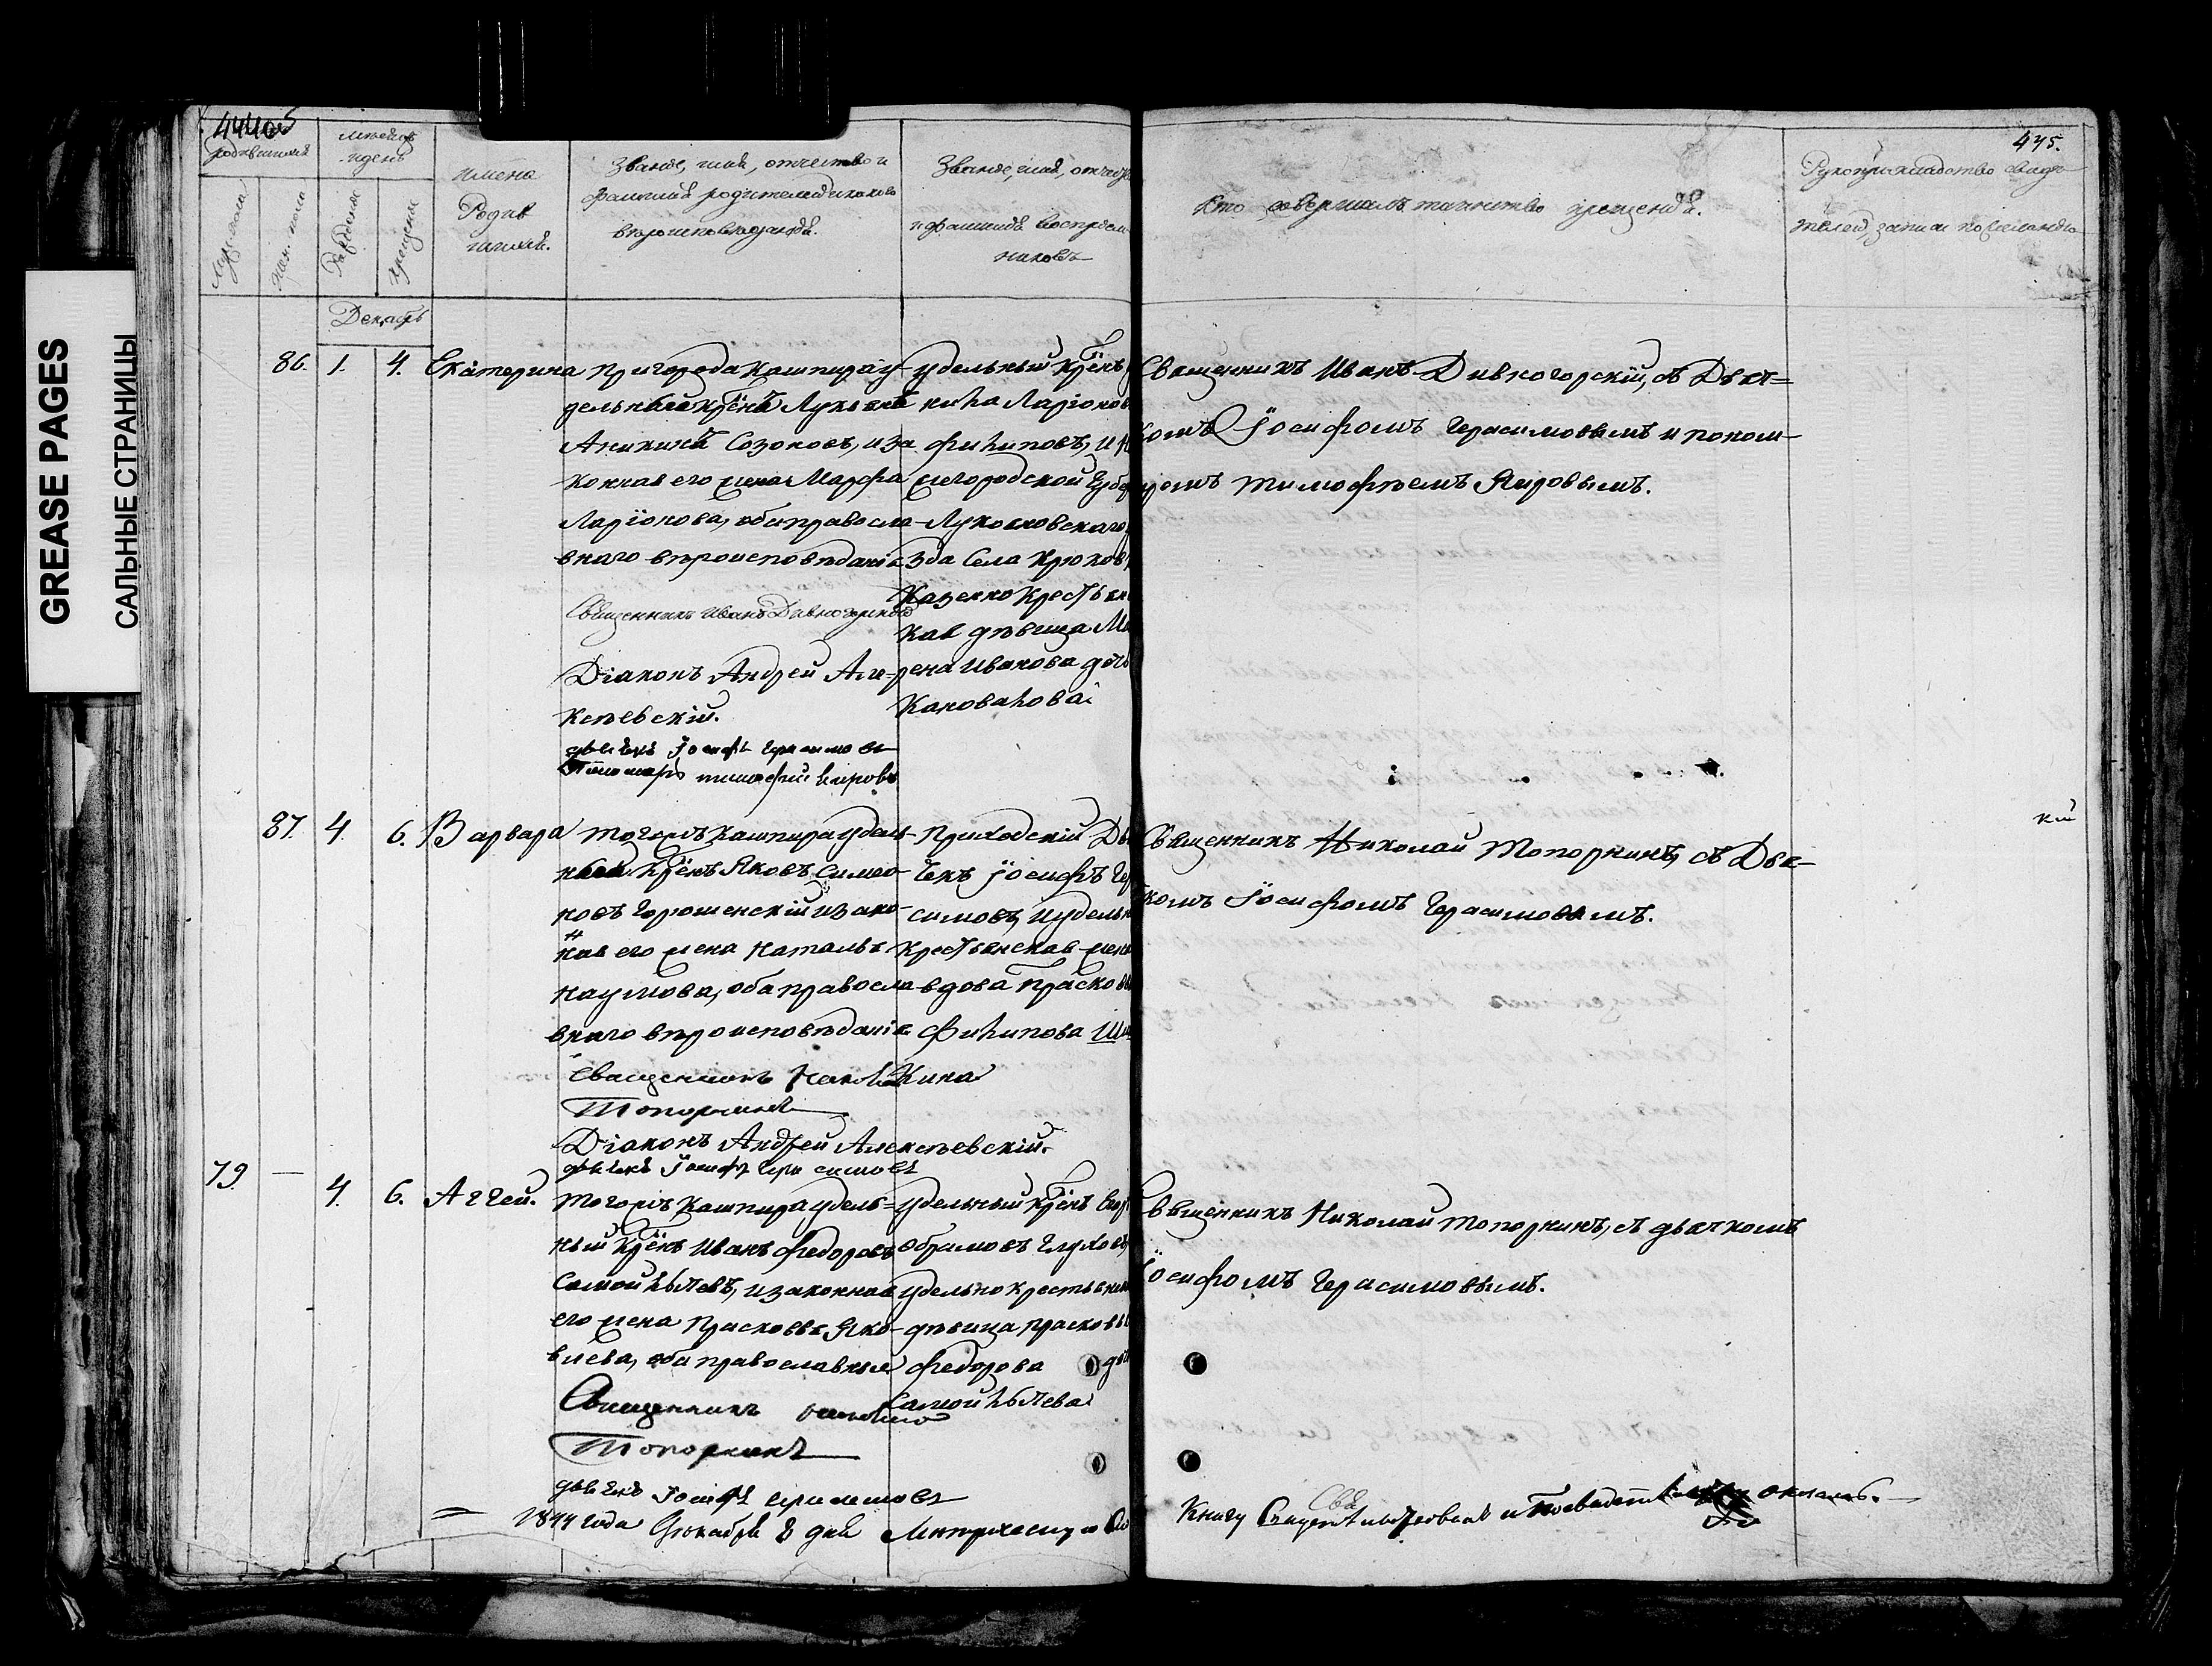 GREASE PAGES
САЛЬНЫЕ СТРАНИЦЫ
475.
Мѣсяцъ
и день
Имена
Родив
шихся.
Званіе, имя, отчество и
фамилія родителей и какого
вѣроисповѣданія.
Званіе, имя, отчест
и фамилія воспріем
никовъ
Кто совершалъ таинство крещенія.
Рукоприкладство свидѣ
телей записи по желанію
Муж. пола
Жен. пола
Рожденія
Крещенія
Декабрь
86. 1. 4. Екатерина
Пригорода Кашпира у-
дельный крѣнъ Лукьянъ
Аникинъ Созоновъ, и за
конная его жена Марфа
Ларіонова, оба правосла-
внаго вѣроисповѣданія
Священникъ Иванъ Дивногорскій
Діаконъ Андрей Але-
ксѣевскій.
дьячекъ Іосифъ Герасимовъ
Пономарь Тимофей Яировъ
удельный крѣнъ
кила Ларіонов
Филиповъ, и Н
жегородской Губер
Лукояновскаго
зда Села Крюков
Казенно Крестьян
кая дѣвица Ма
рена Иванова дѣч
Коновалова
Священникъ Иванъ Дивногорскій, съ Дьяч=
комъ Іосифомъ Герасимовымъ и поном-
ремъ Тимофѣемъ Яировымъ.
87. 4. 6. Варвара
Тогожъ Кашпира удель-
ный крѣнъ Яковъ Симео-
новъ Горошенскій и зако-
ная его жена Наталья
Наумова, оба правосла-
внаго вѣроисповѣданія
Священникъ Николай
Топорнинъ
Діаконъ Андрей Алексѣевскій.
дьячекъ Іосифъ Герасимовъ
Приходскій Дья
чекъ Іосифъ Гер
симовъ, и удельн
крестьянская жена
вдова Прасковь
Филипова Ши
кина
Священникъ Николай Топорнинъ, съ Дья-
комъ Іосифомъ Герасимовымъ.
кій
79. — 4. 6. Аггей.
Тогожъ Кашпира удель=
ный крѣнъ Иванъ Федоровъ
Самойловъ, и законная
его жена Прасковья Яко-
влева, оба православныя
Священникъ Николай
Топорнинъ
дьячекъ Іосифъ Герасимовъ
удельный крѣнъ
Глуховъ
удельно крестьянск
дѣвица Прасковь
Федорова дѣч
Самойлова
Священникъ Николай Топорнинъ, съ дьячкомъ
Іосифомъ Герасимовымъ.
1844 года Декабря 8 дня Метрическую
Книгу свидетельствовалъ и